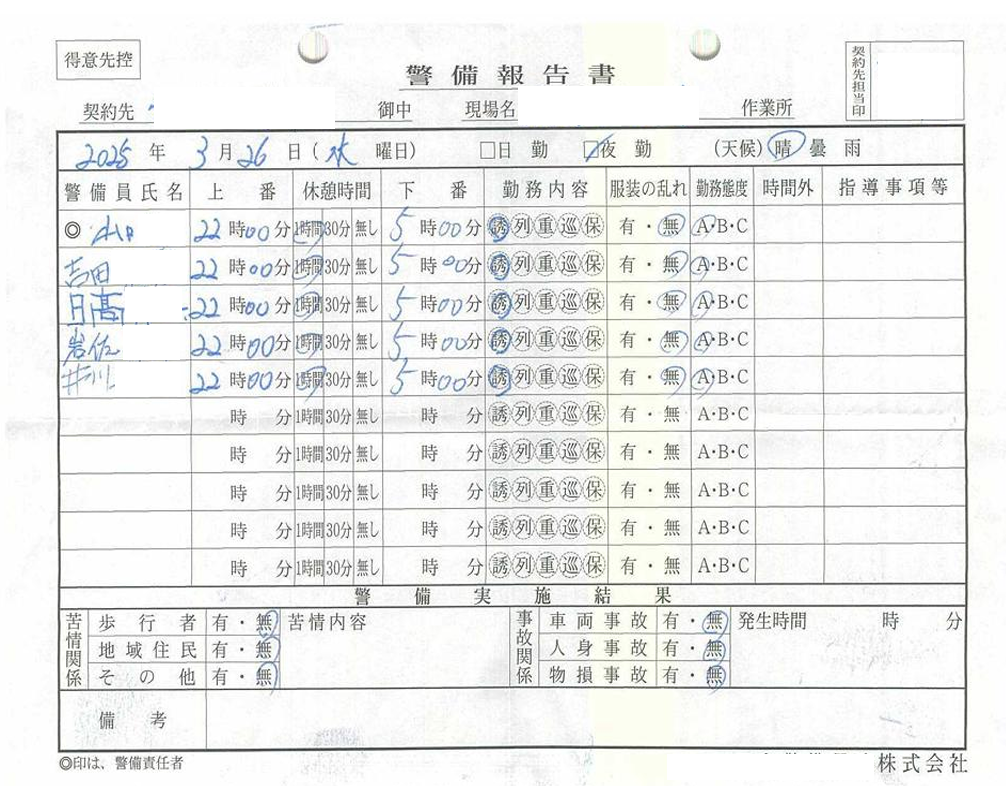 得意先控
警備報告書
契約先担当印
契約先 御中 現場名 作業所
2025年 3月26日(水曜日) □日勤 ☑夜勤 (天候)晴 曇 雨
警備員氏名 上番 休憩時間 下番 勤務内容 服装の乱れ 勤務態度 時間外 指導事項等
◎ 22時00分 1時間 30分 無し 5時00分 誘列重巡保 有・無 A・B・C
吉田 22時00分 1時間 30分 無し 5時00分 誘列重巡保 有・無 A・B・C
日髙 22時00分 1時間 30分 無し 5時00分 誘列重巡保 有・無 A・B・C
岩佐 22時00分 1時間 30分 無し 5時00分 誘列重巡保 有・無 A・B・C
井川 22時00分 1時間 30分 無し 5時00分 誘列重巡保 有・無 A・B・C
時 分 1時間 30分 無し 時 分 誘列重巡保 有・無 A・B・C
時 分 1時間 30分 無し 時 分 誘列重巡保 有・無 A・B・C
時 分 1時間 30分 無し 時 分 誘列重巡保 有・無 A・B・C
時 分 1時間 30分 無し 時 分 誘列重巡保 有・無 A・B・C
時 分 1時間 30分 無し 時 分 誘列重巡保 有・無 A・B・C
警備実施結果
苦情関係 歩行者 有・無 苦情内容 事故関係 車両事故 有・無 発生時間 時 分
地域住民 有・無 人身事故 有・無
その他 有・無 物損事故 有・無
備考
◎印は、警備責任者 株式会社